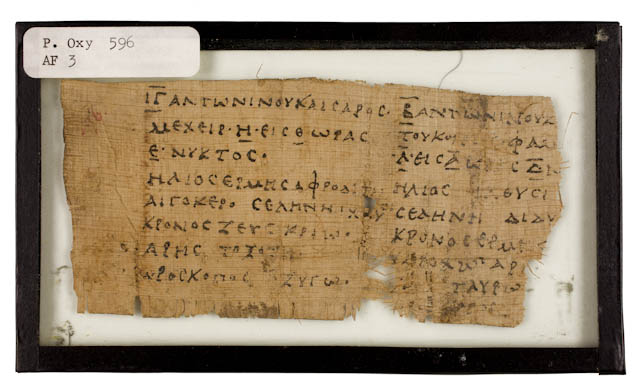 P. Oxy 596
AF 3
ΙΓ ΑΝΤΩΝΙΝΟΥ ΚΑΙΣΑΡΟΣ
ΜΕΧΕΙΡ Η ΕΙΣ Θ ΩΡΑΣ
Ε ΝΥΚΤΟΣ
ΗΛΙΟΣ ΕΡΜΗΣ ΑΦΡΟΔΙΤΗ
ΑΙΓΟΚΕΡΩ ΣΕΛΗΝΗ
ΚΡΟΝΟΣ ΖΕΥΣ ΚΡΙΩ
ΑΡΗΣ ΤΟΞΟ
ΩΡΟΣΚΟΠΟΣ ΖΥΓΩ
Β ΑΝΤΩΝΙΝΟΥ Κ
ΤΟΥ ΚΥ ΦΑ
Λ ΕΙΣ
ΗΛΙΟΣ
ΣΕΛΗΝΗ ΔΙΔΥ
ΚΡΟΝΟΣ ΕΡΜΗΣ
ΑΡ
ΤΑΥΡΩ